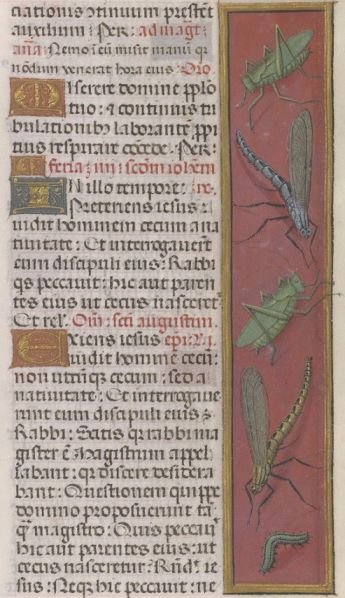 ciationis cōtinuum prestēt
auxilium : Per: ad mag̃t
añā Nemo ī eū misit manū q̃
nōdum venerat hora eius : Oro
Miserere domine pplo
tuo : ⁊ continuis tri
bulationibꝫ laborantē ppi
tius respirare cōcede . Per:
feria iiij scōm iohem
N illo tempore : Jre.
Preteriens iesus :
uidit hominem cecum a na
tiuitate : Et interrogauerūt
eum discipuli eius : Rabbi
q̃s peccauit : hic aut paren
tes eius ut cecus nasceret
Et rel . Om̃ : scī augustini .
Exiens iesus epi:
uidit hominē cecū :
non utcūq̃ cecum : sed a
natiuitate : Et interrogaue
runt eum discipuli eius :
Rabbi : Satis q̃ rabbi ma
gister ē Magistrum appel
labant : q̃ discere desidera
bant : Questionem quippe
domino proposuerunt tā
q̃ magistro : Quis peccauit
hic aut parentes eius : ut
cecus nasceretur : Rñd: ie
sus : Neqꝫ hic peccauit : ne